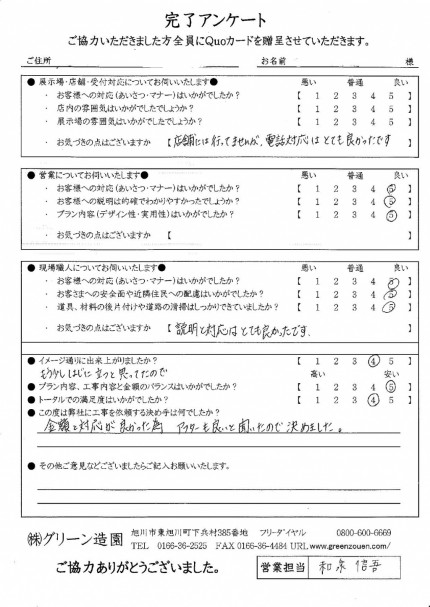 完了アンケート
ご協力いただきました方全員にQuoカードを贈呈させていただきます。
ご住所 お名前 様
● 展示場・店舗・受付対応についてお伺いいたします● 悪い 普通 良い
・ お客様への対応(あいさつ・マナー)はいかがでしたか? 【 1 2 3 4 5 】
・ 店内の雰囲気はいかがでしたでしょうか? 【 1 2 3 4 5 】
・ 展示場の雰囲気はいかがでしたでしょうか? 【 1 2 3 4 5 】
・ お気づきの点はございますか 【 店舗には行ってませんが、電話対応はとても良かったです
● 営業についてお伺いいたします● 悪い 普通 良い
・ お客様への対応(あいさつ・マナー)はいかがでしたか? 【 1 2 3 4 5 】
・ お客様への説明は的確でわかりやすかったでしょうか? 【 1 2 3 4 5 】
・ プラン内容(デザイン性・実用性)はいかがでしたか? 【 1 2 3 4 5 】
・ お気づきの点はございますか 【
● 現場職人についてお伺いいたします● 悪い 普通 良い
・ お客様への対応(あいさつ・マナー)はいかがでしたか? 【 1 2 3 4 5 】
・ お客さまへの安全面や近隣住民への配慮はいかがでしたか? 【 1 2 3 4 5 】
・ 道具、材料の後片付けや道路の清掃はしっかりできていましたか? 【 1 2 3 4 5 】
・ お気づきの点はございますか 【 説明と対応はとても良かったです。
● イメージ通りに出来上がりましたか? 【 1 2 3 4 5 】
もう少しはじに立つと思ってたので 高い 安い
● プラン内容、工事内容と金額のバランスはいかがでしたか? 【 1 2 3 4 5 】
● トータルでの満足度はいかがでしたか? 【 1 2 3 4 5 】
● この度は弊社に工事を依頼する決め手は何でしたか?
金額と対応が良かった為 アフターも良いと聞いたので決めました。
● その他ご意見などございましたらご記入お願いいたします。
㈱グリーン造園 旭川市東旭川町下兵村385番地 フリーダイヤル 0800-600-6669
TEL 0166-36-2525 FAX 0166-36-4484 URL www.greenzouen.com/
ご協力ありがとうございました。 営業担当 和泉 信吾